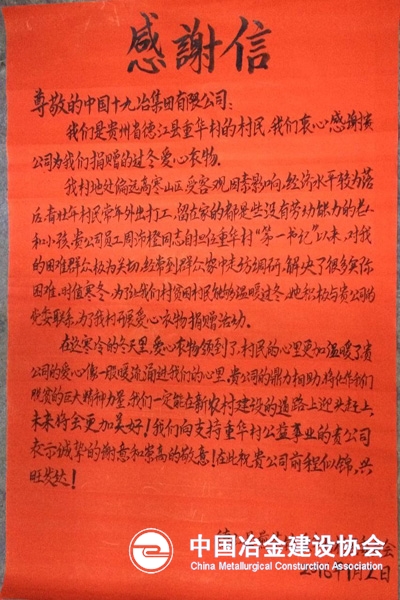 感謝信
尊敬的中国十九冶集团有限公司：
我们是贵州省德江县重华村的村民，我们衷心感谢贵
公司为我们捐赠的过冬爱心衣物。
我村地处偏远高寒山区，受客观因素影响，经济水平较为落
后，青壮年村民常年外出打工，留在家的都是些没有劳动能力的老人
和小孩，贵公司员工周 同志自担任重华村“第一书记”以来，对我
的困难群众极为关切，经常到群众家中走访调研，解决了很多实际
困难。时值寒冬，为了让我们村贫困村民能够温暖过冬，她积极与贵公司的
党委联系，为了我村开展爱心衣物捐赠活动。
在这寒冷的冬天里，爱心衣物领到了，村民的心里更加温暖了，贵
公司的爱心像一股暖流涌进我们的心里，贵公司的鼎力相助，将化作我们
脱贫的巨大精神力量，我们一定能在新农村建设的道路上迎头赶上，
未来将会更加美好！我们向支持重华村公益事业的贵公司
表示诚挚的谢意和崇高的敬意！在此祝贵公司前程似锦，兴
旺发达！
会
中国冶金建设协会
China Metallurgical Consturction Association
月2日